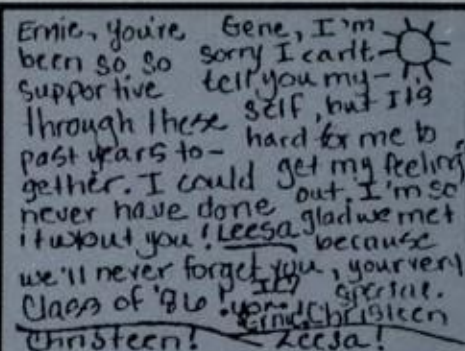 Ernie, you're
been so so
supportive
through these
past years to-
gether. I could
never have done
it w/out you! Leesa
we'll never forget you, your very
Class of '86!
Christeen!
Gene, I'm
sorry I can't
tell you my-
self, but it's
hard for me to
get my feeling
out. I'm so
glad we met
because
special.
Christeen
Leesa!